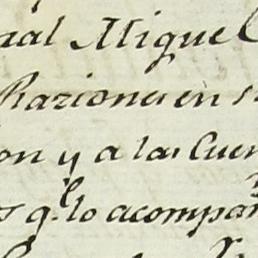 ral Miguel
Raziones en s
on y a las Cuen
s q.e lo acompañ